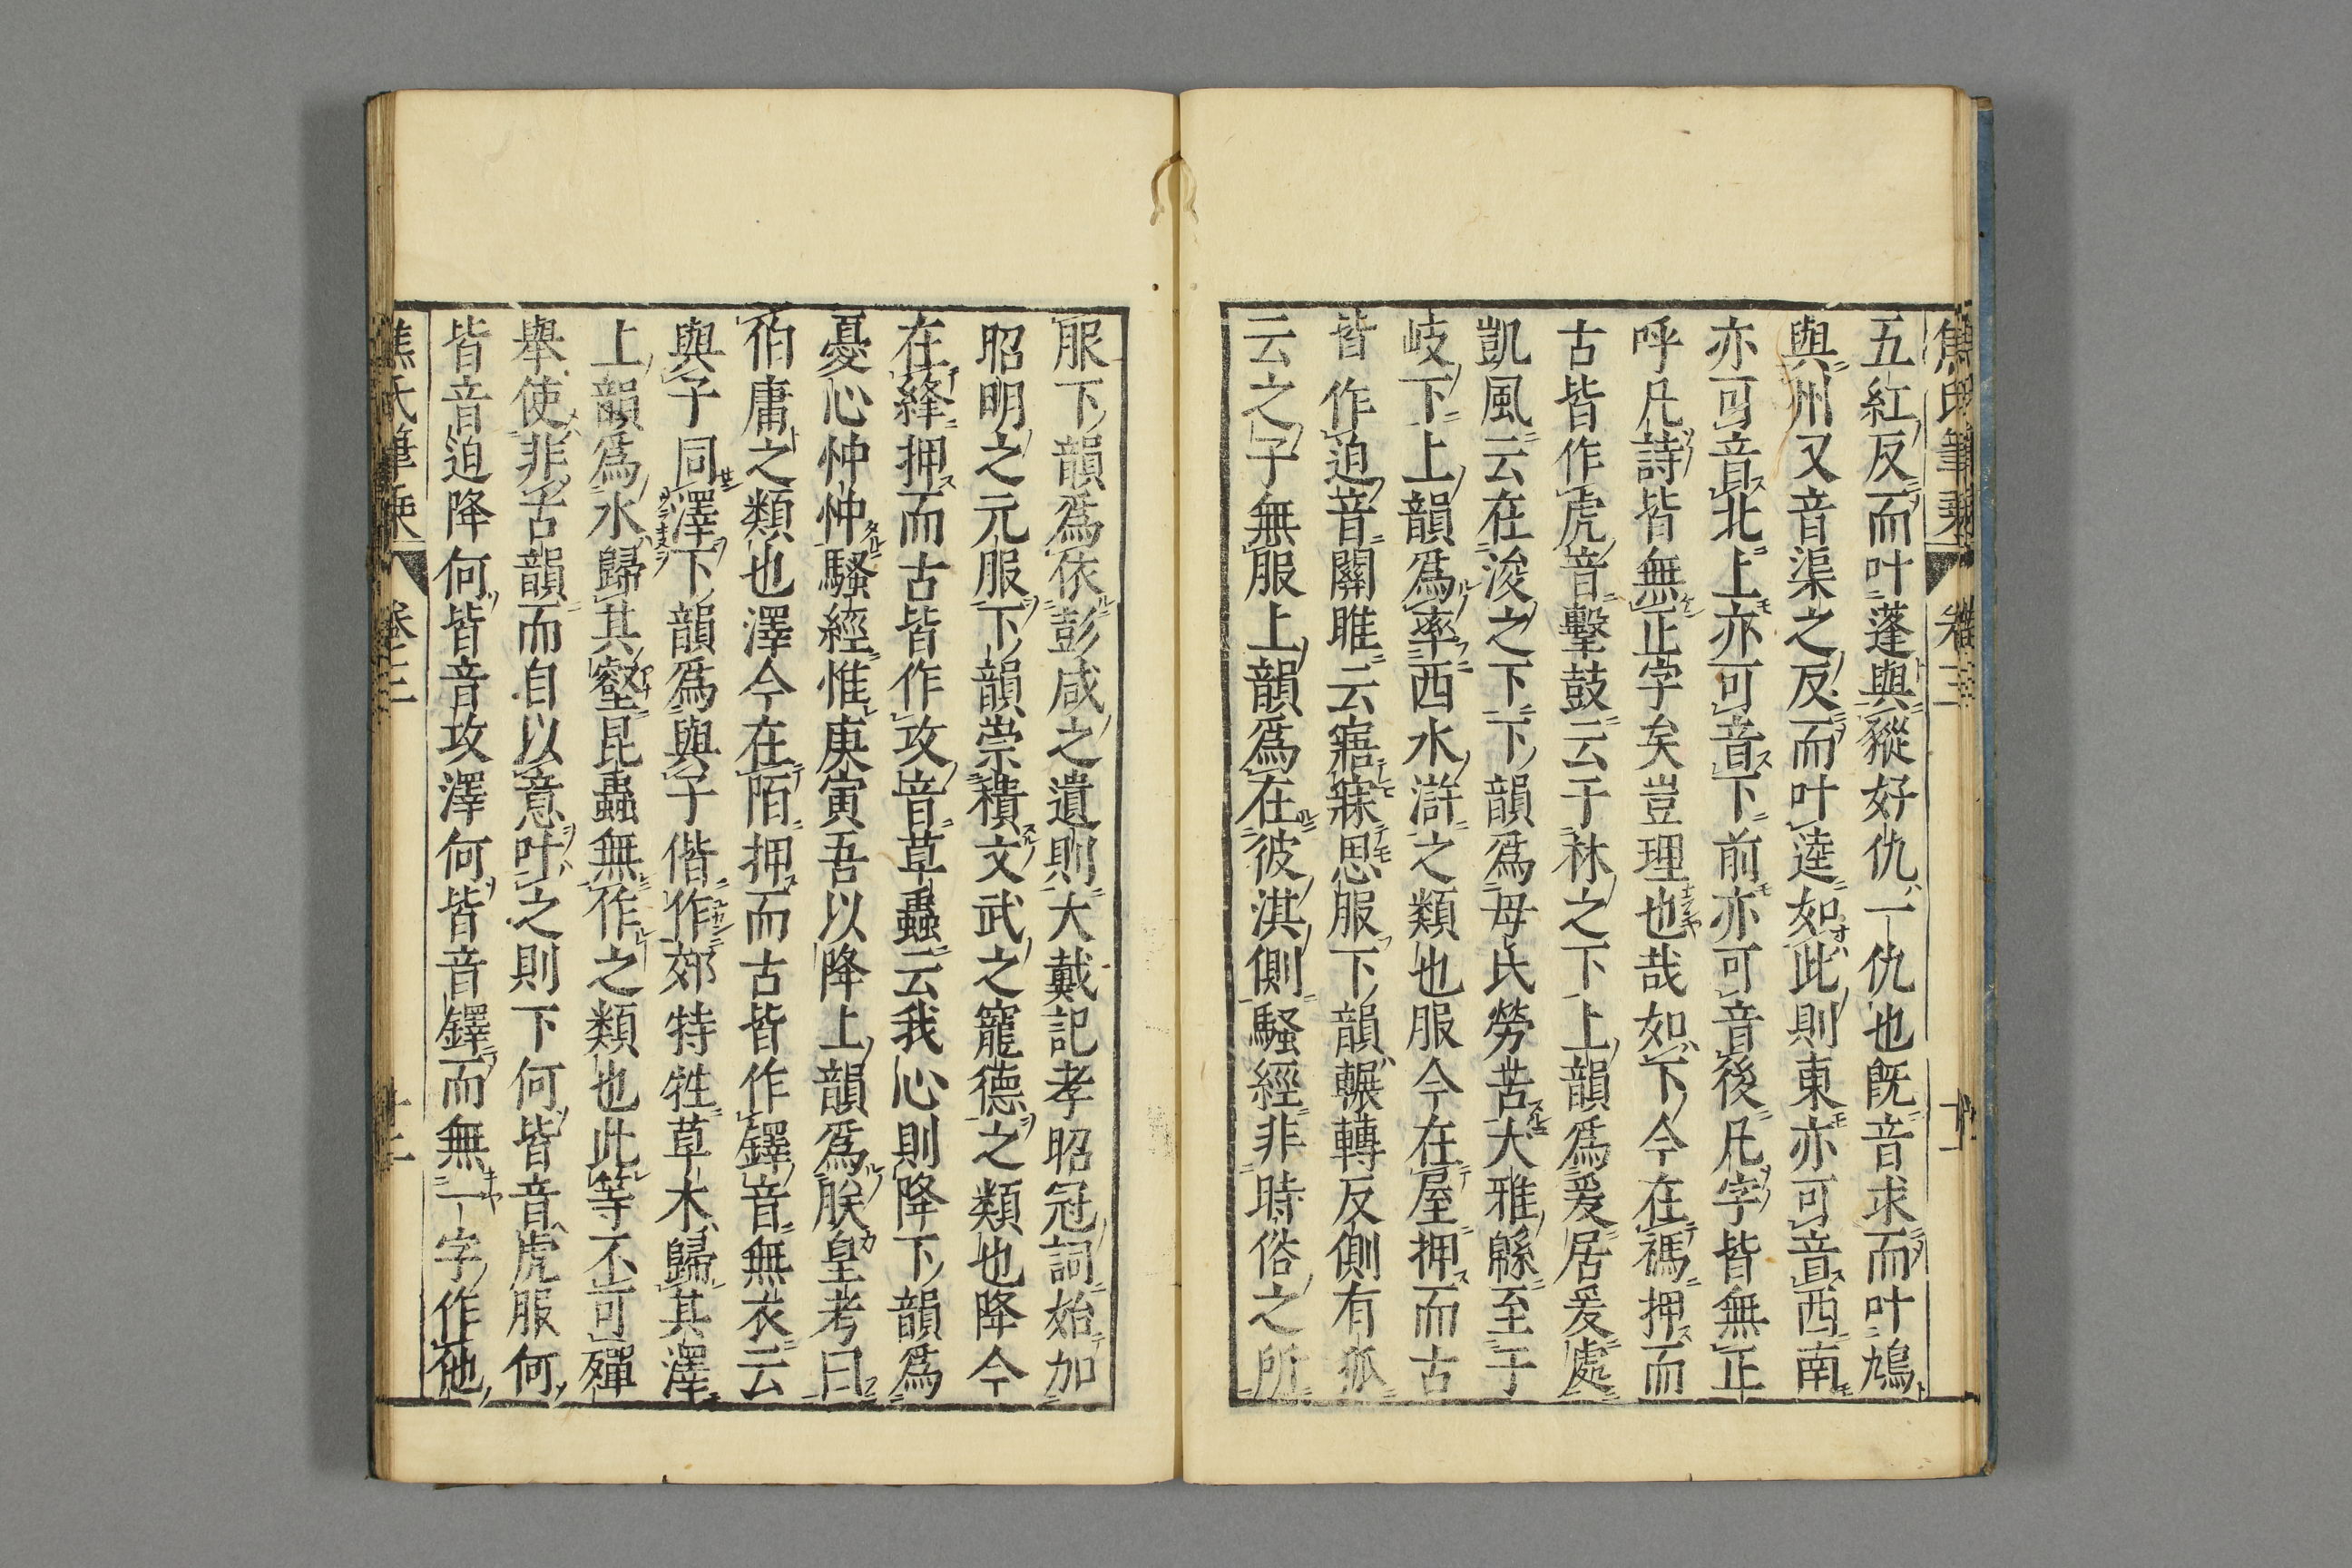 焦氏筆乘 卷三 十一
五紅反而叶蓬與豵好仇一仇也旣音求而叶鳩
與州又音渠之反而叶逵如此則東亦可音西南
亦可音北上亦可音下前亦可音後凡字皆無正
呼凡詩皆無正字矣豈理也哉如下今在禡押而
古皆作虎音擊鼓云于林之下上韻爲爰居爰處
凱風云在浚之下下韻爲母氏勞苦大雅緜至于
岐下上韻爲率西水滸之類也服今在屋押而古
皆作迫音關雎云寤寐思服下韻輾轉反側有狐
云之子無服上韻爲在彼淇側騷經非時俗之所
服下韻爲依彭咸之遺則大戴記孝昭冠詞始加
昭明之元服下韻崇積文武之寵德之類也降今
在絳押而古皆作攻音草蟲云我心則降下韻爲
憂心忡忡騷經惟庚寅吾以降上韻爲朕皇考曰
伯庸之類也澤今在陌押而古皆作鐸音無衣云
與子同澤下韻爲與子偕作郊特牲草木歸其澤
上韻爲水歸其壑昆蟲無作之類也此等不可殫
舉使非古韻而自以意叶之則下何皆音虎服何
皆音迫降何皆音攻澤何皆音鐸而無一字作他
焦氏筆乘 卷三 十二